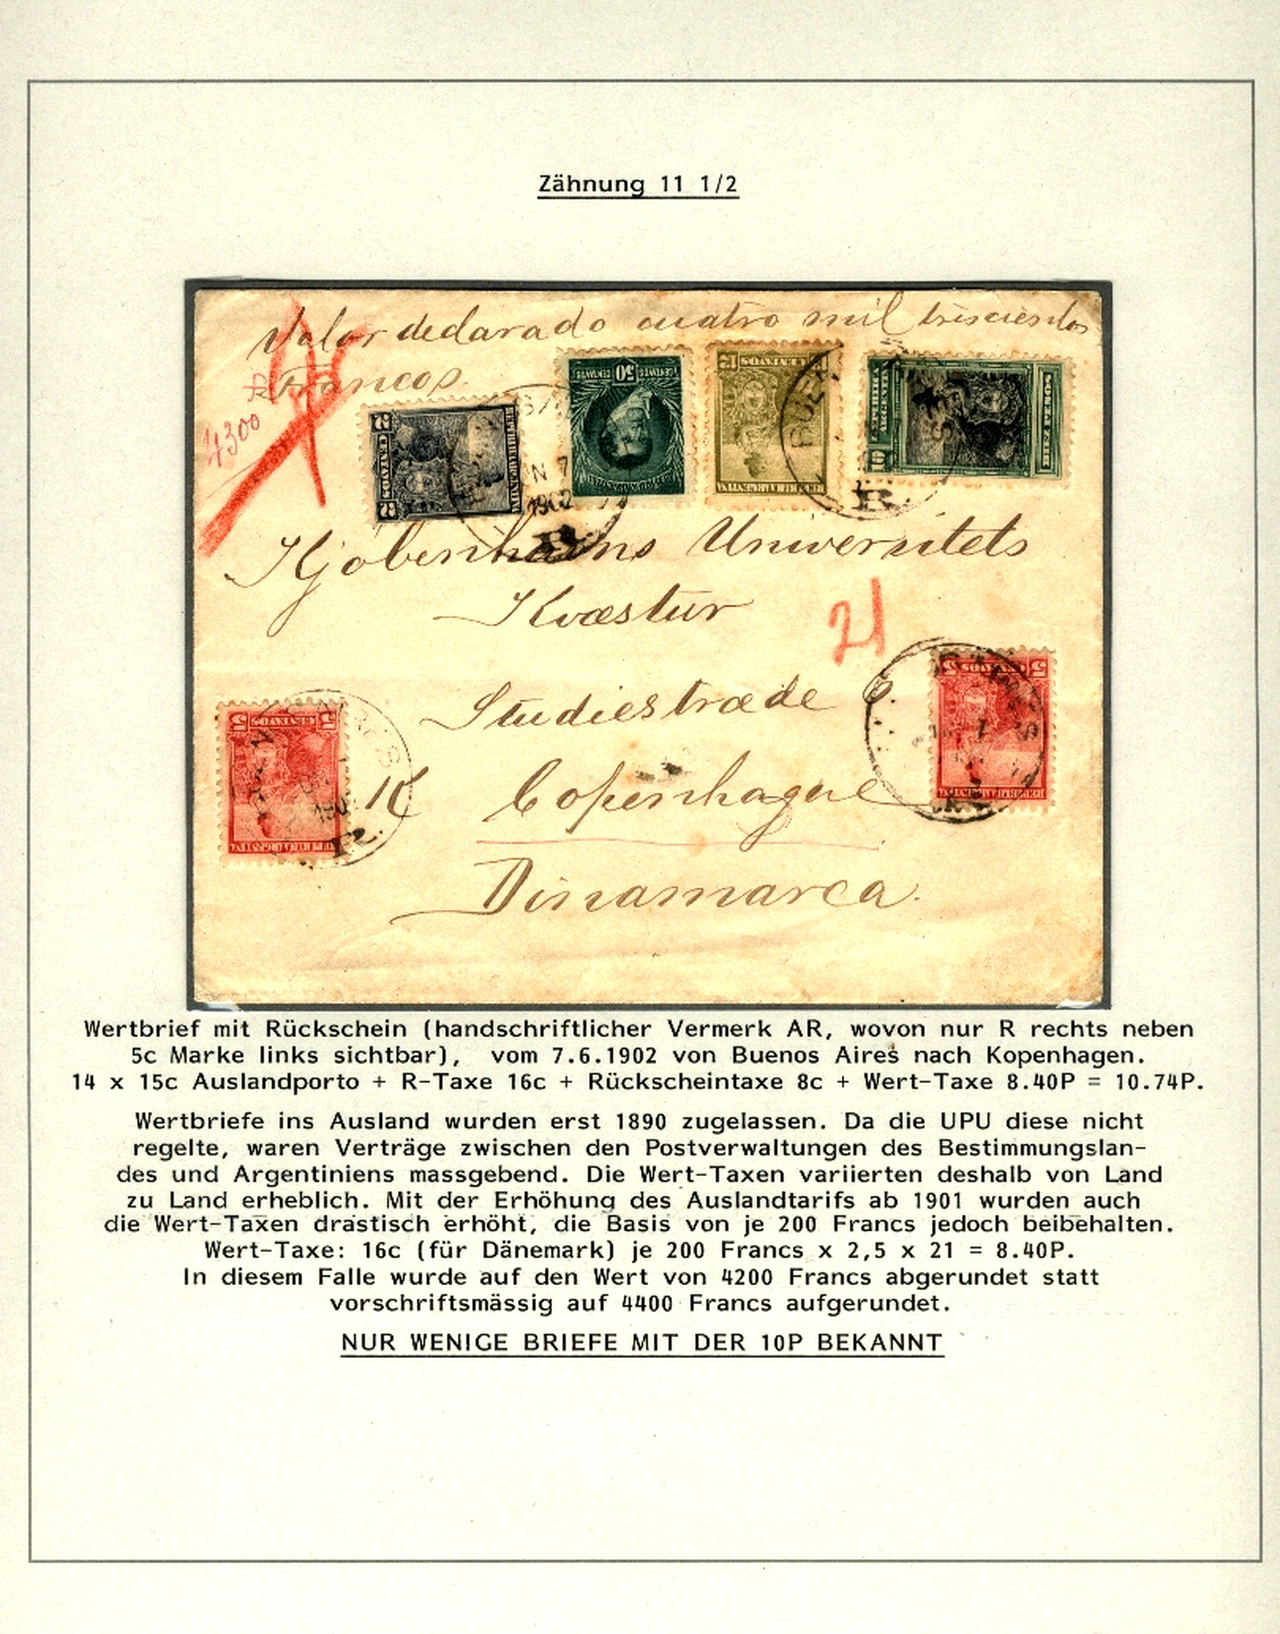 Zähnung 11 1/2
Valor declarado cuatro mil trescientos
Francos.
4300
50
CENTAVOS
12
CENTAVOS
REPUBLICA ARGENTINA
10
REPUBLICA ARGENTINA
DIEZ PESOS
2
CENTAVOS
2
REPUBLICA ARGENTINA
N 7
1902
R.
BUEN
R.
Kjobenhavns Universitets
Kvæstur
21
Studiestræde 6
5 CENTAVOS 5
REPUBLICA ARGENTINA
5 CENTAVOS 5
REPUBLICA ARGENTINA
R.
K Copenhague
Dinamarca.
Wertbrief mit Rückschein (handschriftlicher Vermerk AR, wovon nur R rechts neben
5c Marke links sichtbar), vom 7.6.1902 von Buenos Aires nach Kopenhagen.
14 x 15c Auslandporto + R-Taxe 16c + Rückscheintaxe 8c + Wert-Taxe 8.40P = 10.74P.
Wertbriefe ins Ausland wurden erst 1890 zugelassen. Da die UPU diese nicht
regelte, waren Verträge zwischen den Postverwaltungen des Bestimmungslan-
des und Argentiniens massgebend. Die Wert-Taxen variierten deshalb von Land
zu Land erheblich. Mit der Erhöhung des Auslandtarifs ab 1901 wurden auch
die Wert-Taxen drastisch erhöht, die Basis von je 200 Francs jedoch beibehalten.
Wert-Taxe: 16c (für Dänemark) je 200 Francs x 2,5 x 21 = 8.40P.
In diesem Falle wurde auf den Wert von 4200 Francs abgerundet statt
vorschriftsmässig auf 4400 Francs aufgerundet.
NUR WENIGE BRIEFE MIT DER 10P BEKANNT